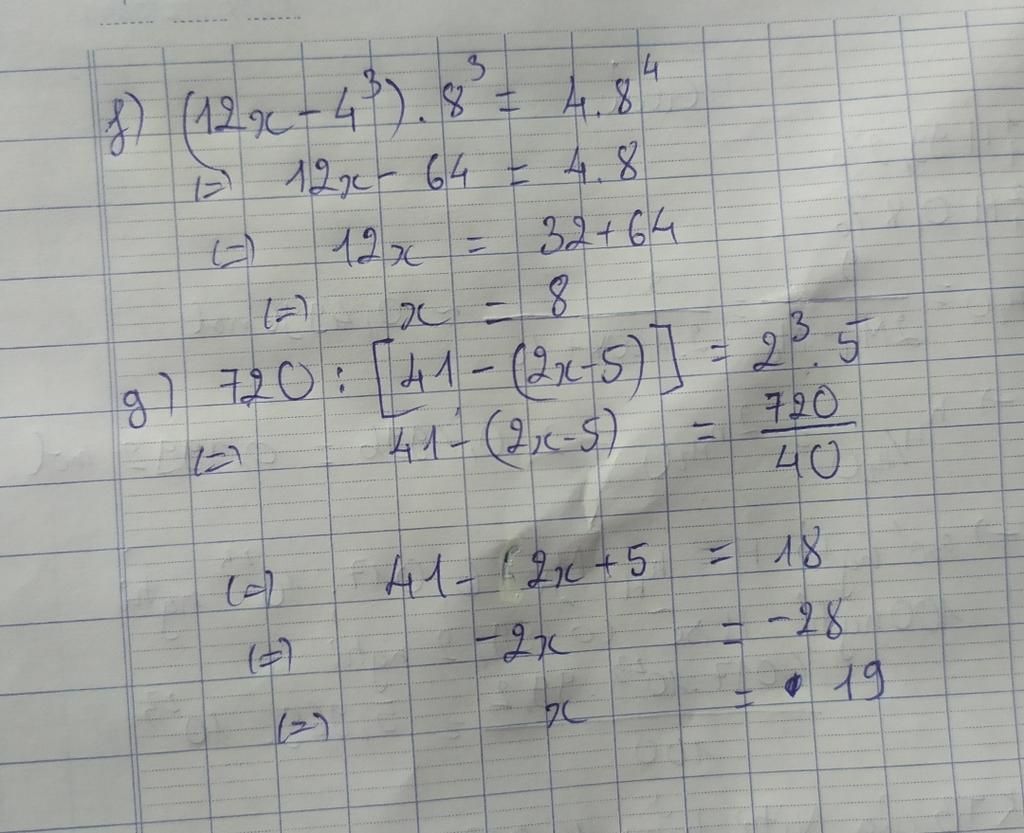 f) (12x - 4³) . 8³ = 4 . 8⁴
(=) 12x - 64 = 4 . 8
(=) 12x = 32 + 64
(=) x = 8
g) 720 : [41 - (2x - 5)] = 2³ . 5
(=) 41 - (2x - 5) = 720/40
(=) 41 - 2x + 5 = 18
(=) -2x = -28
(=) x = 19